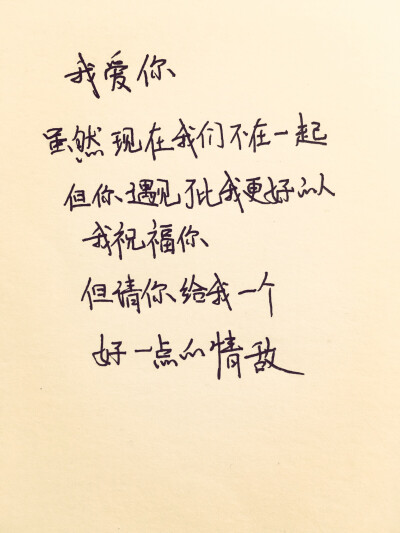 我爱你
虽然现在我们不在一起
但你遇见了比我更好的人
我祝福你
但请你给我一个
好一点的情敌